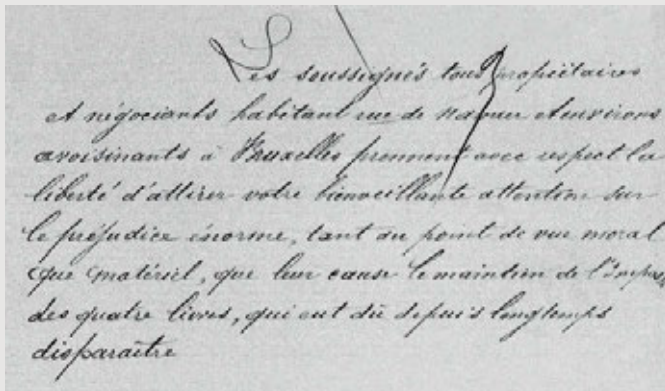 Les soussignés tous propiétaires
et négociants habitant rue de Namur et environs
avoisinants à Bruxelles prennent avec respect la
liberté d'attirer votre bienveillante attention sur
le préjudice énorme, tant au point de vue moral
que matériel, que leur cause le maintien de l'Impasse
des quatre livres, qui eut dû depuis longtemps
disparaître